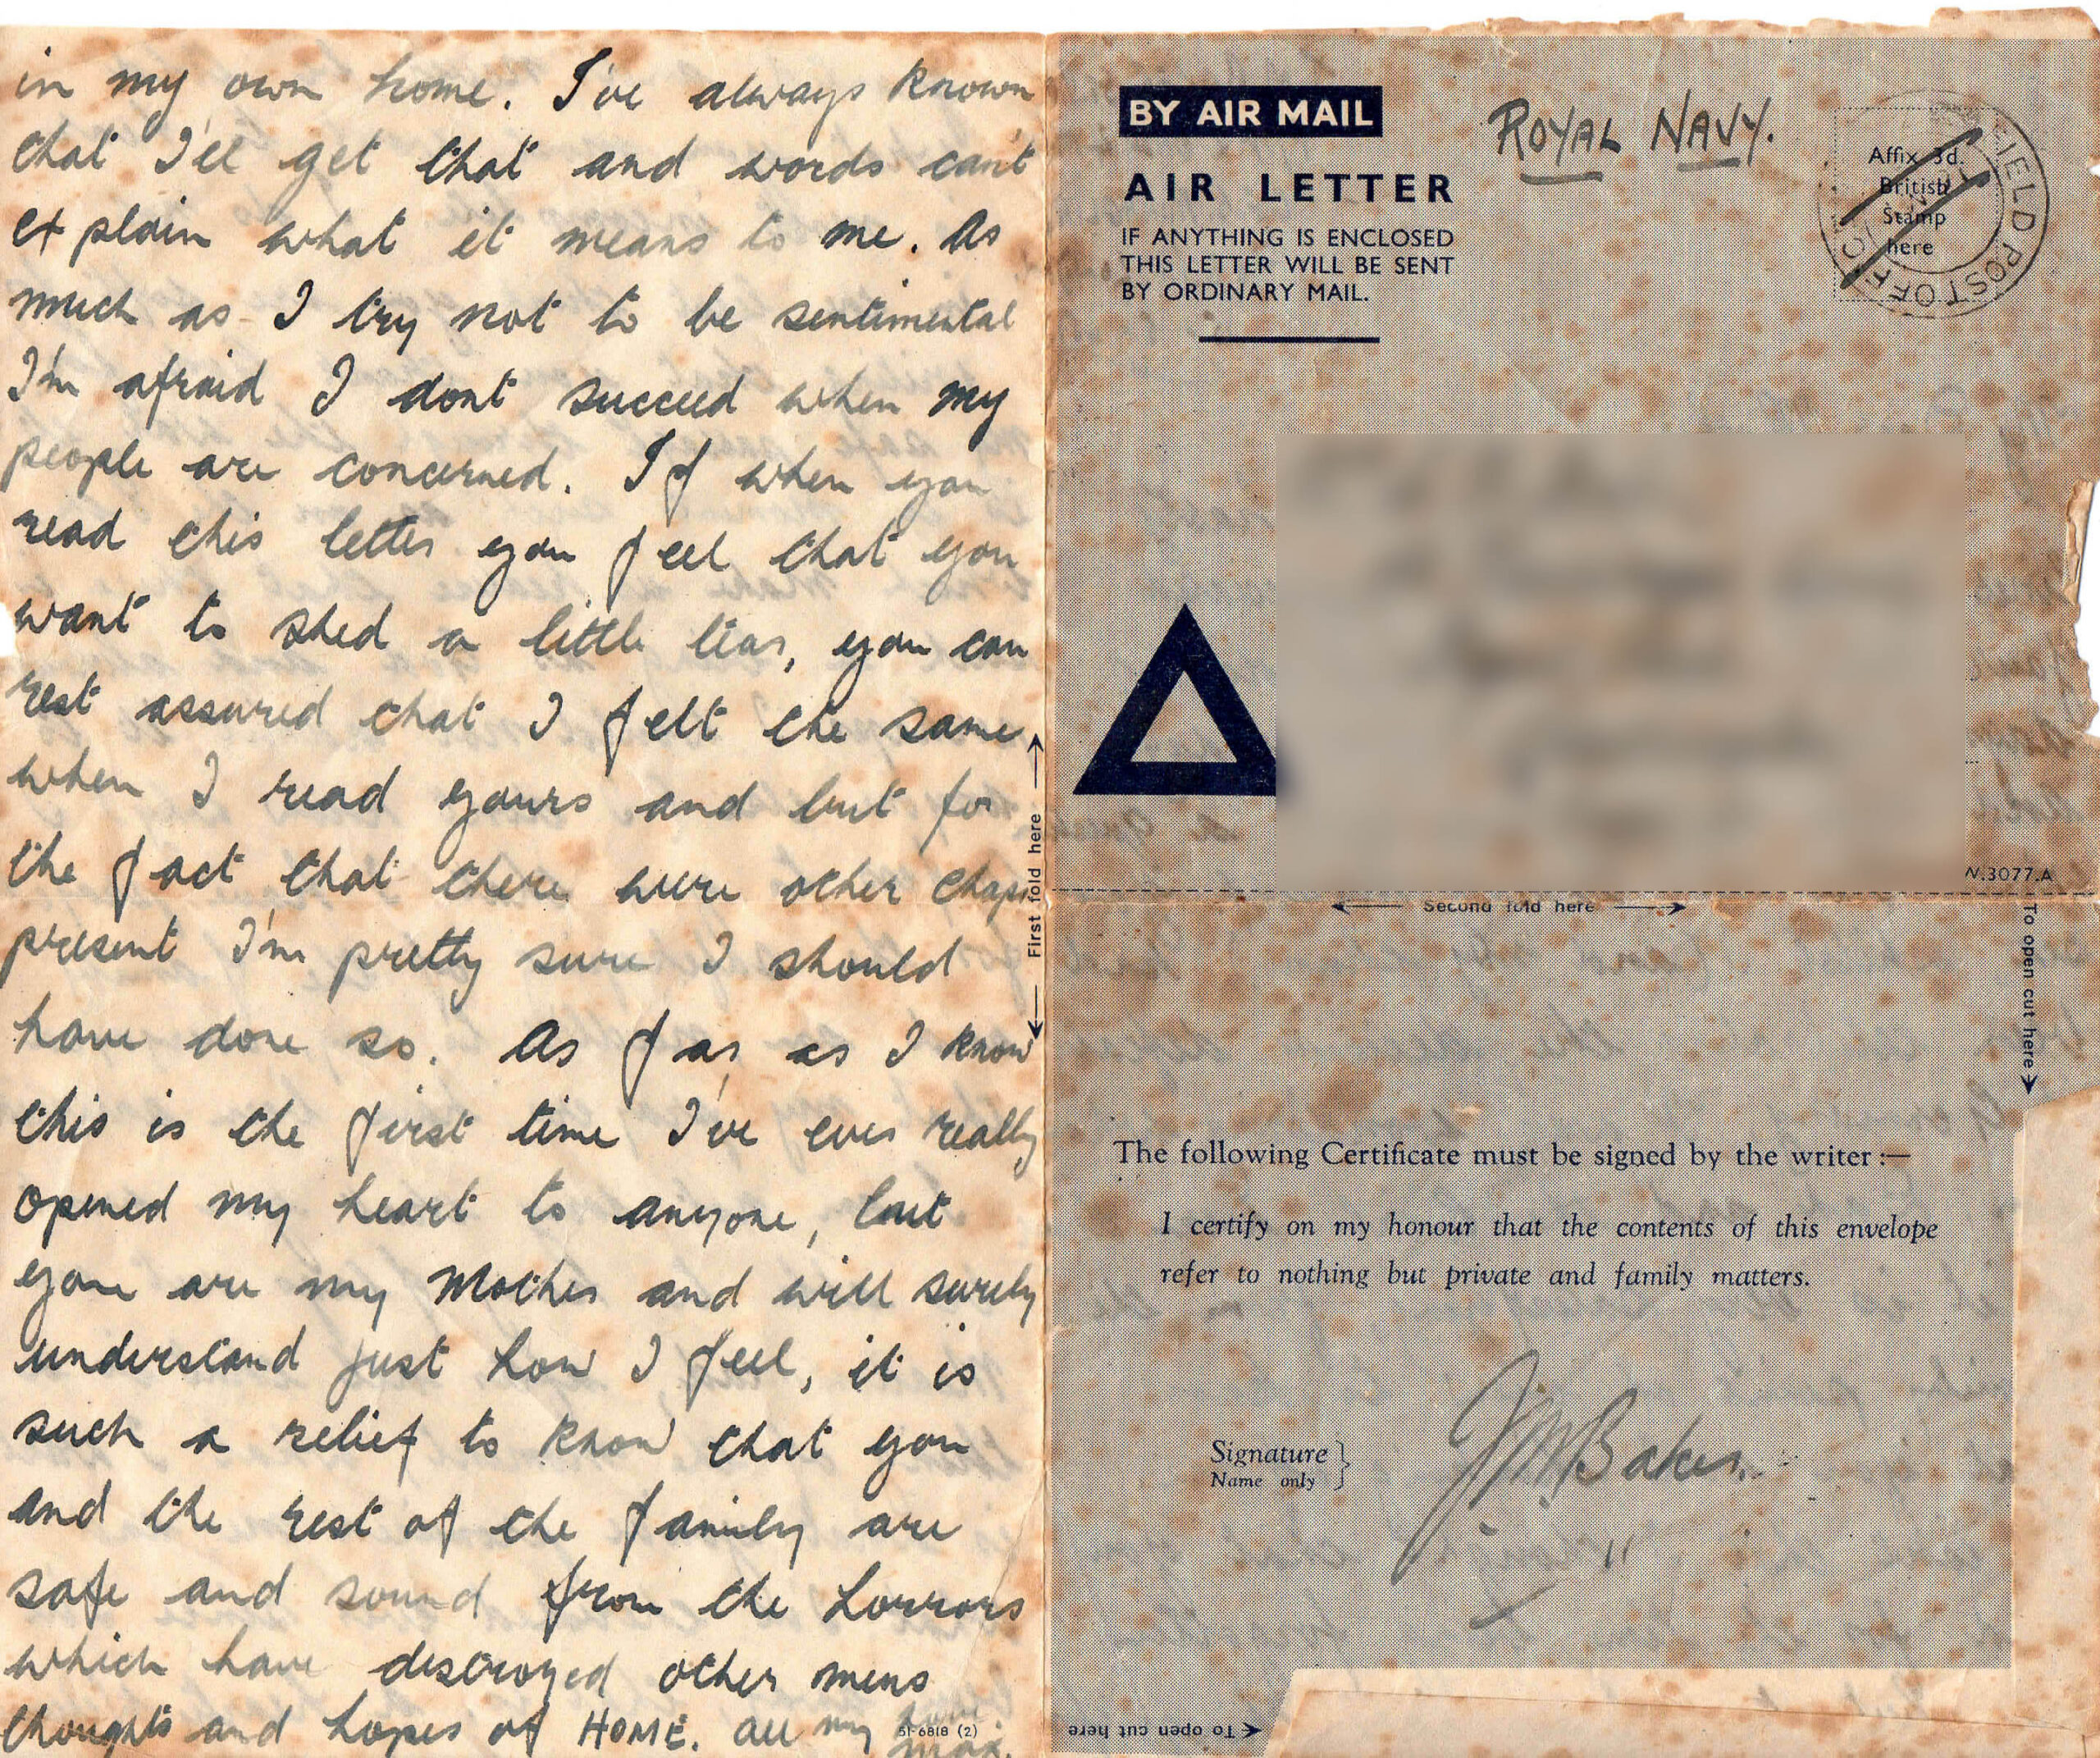 in my own home. I've always known
that I'll get that and words can't
explain what it means to me. As
much as I try not to be sentimental
I'm afraid I dont succeed when my
people are concerned. If when you
read this letter you feel that you
want to shed a little tear, you can
rest assured that I felt the same
when I read yours and but for
the fact that there were other chaps
present I'm pretty sure I should
have done so. As far as I know
this is the first time I've ever really
opened my heart to anyone, but
you are my Mother and will surely
understand just how I feel, it is
such a relief to know that you
and the rest of the family are
safe and sound from the horrors
which have destroyed other mens
thoughts and hopes of HOME. All my love
Max.
51-6818 (2)
First fold here
BY AIR MAIL
ROYAL NAVY.
AIR LETTER
IF ANYTHING IS ENCLOSED
THIS LETTER WILL BE SENT
BY ORDINARY MAIL.
Affix 3d.
British
Stamp
here
FIELD POST OFFICE
W.3077.A
Second fold here
To open cut here
The following Certificate must be signed by the writer:—
I certify on my honour that the contents of this envelope
refer to nothing but private and family matters.
Signature
Name only
JMBaker.
To open cut here